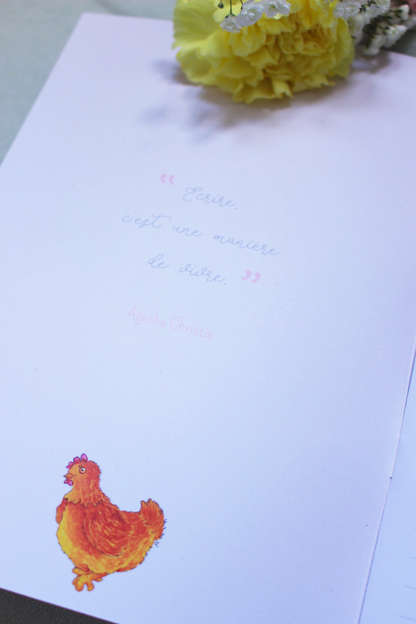 “ Ecrire,
c'est une manière
de vivre. ”
Agatha Christie